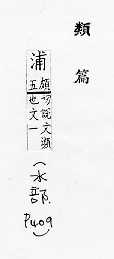 類篇
浦
頗五切說文瀕也文一
(水部 P409)